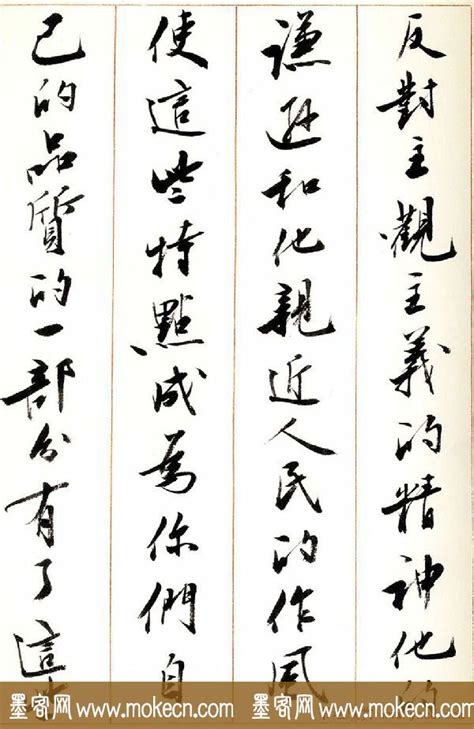 反對主觀主義的精神他的
謙遜和他親近人民的作風
使這些特點成為你們自
己的品質的一部分有了這
墨客网 www.mokecn.com 墨客网 www.mokecn.com